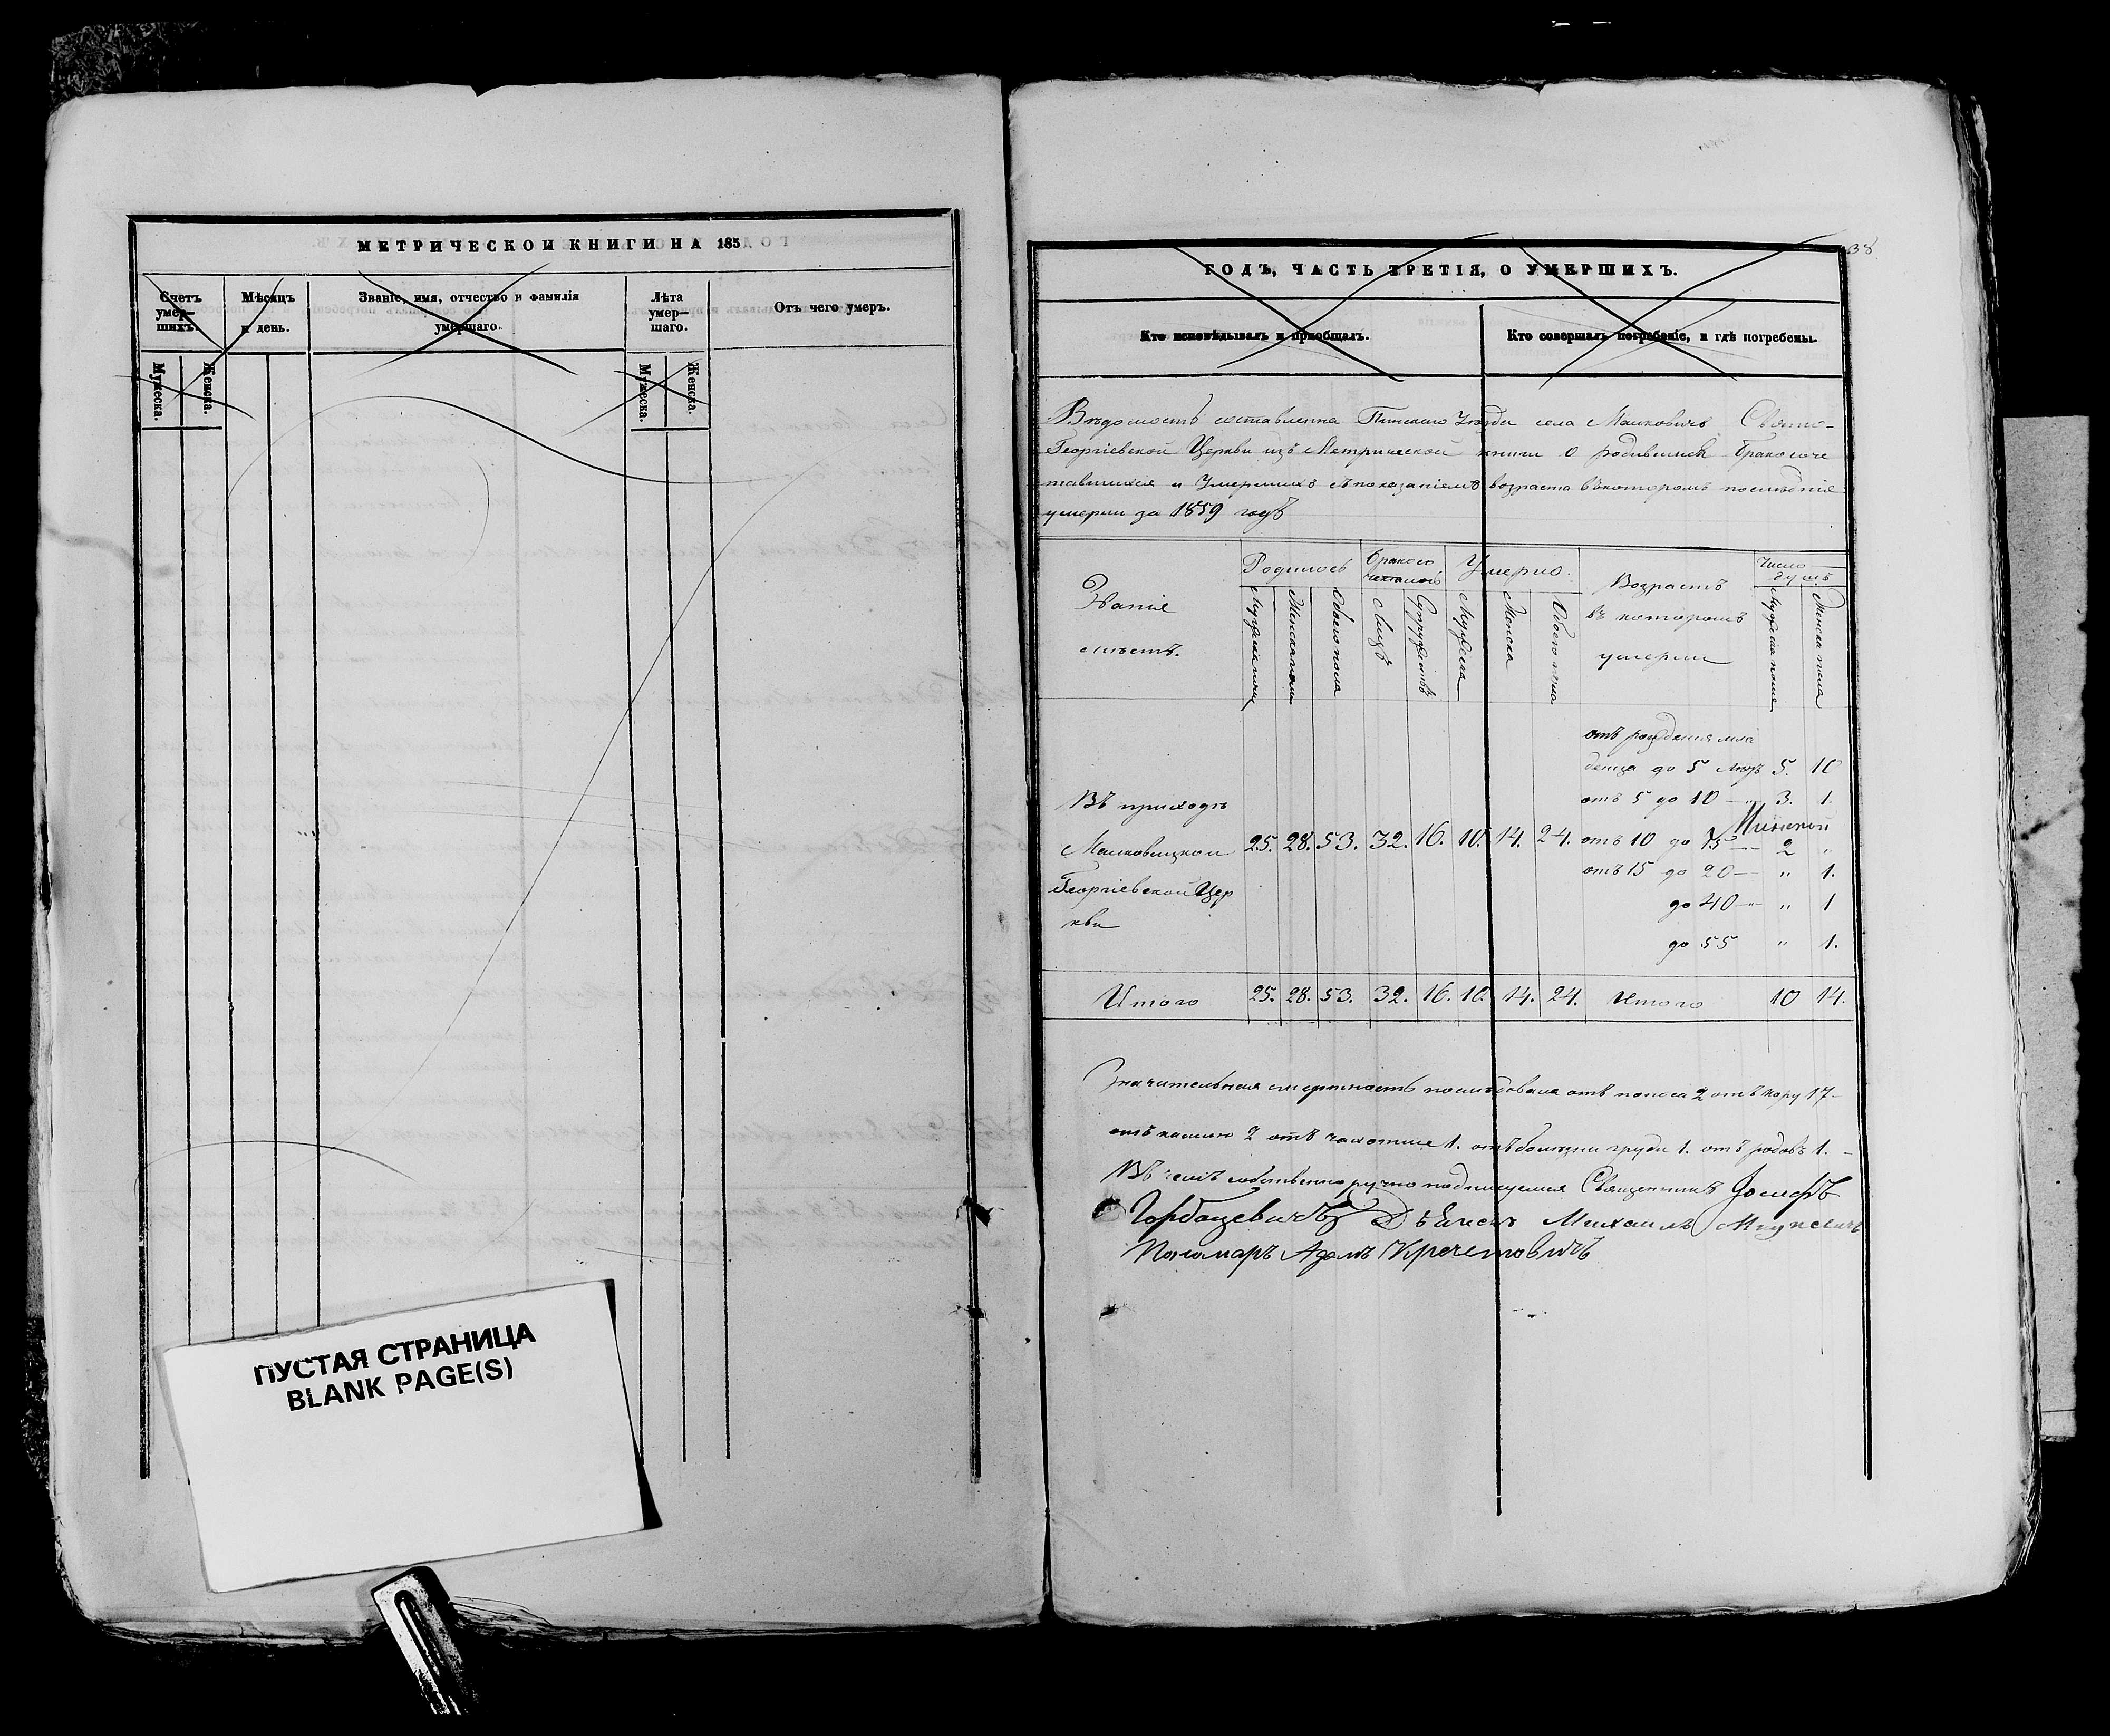 МЕТРИЧЕСКОИ КНИГИ НА 185
Счетъ умер—шихъ.
Мѣсяцъ и день.
Званіе, имя, отчество и фамилія умершаго.
Лѣта умер—шаго.
Отъ чего умеръ.
Мужеска.
Женска.
Мужеска.
Женска.
ПУСТАЯ СТРАНИЦА
BLANK PAGE(S)
38
ГОДЪ, ЧАСТЬ ТРЕТІЯ, О УМЕРШИХЪ.
Кто исповѣдывалъ и пріобщалъ.
Кто совершалъ погребеніе, и гдѣ погребены.
Вѣдомость составлена Пинскаго Уѣзда села Малковичъ Свято-
Георгіевской Церкви изъ Метрической книги о родившихся бракосоче
тавшихся и Умершихъ съ показаніемъ возраста въ которомъ послѣдніе
умерли за 1859 годъ
Званіе
мѣстъ.
Родилось
Бракосо
четалось
Умерло.
Возрастъ
въ которомъ
умерли
Число
душъ
Мужеска пола
Женска пола
Обоего пола
Лицъ
Супружествъ
Мужеска
Женска
Обоего пола
Мужеска пола
Женска пола
отъ рожденія мла
денца до 5 лѣтъ 5. 10
Въ приходѣ
отъ 5 до 10 — „ 3. 1.
Минской
Малковицкой 25. 28. 53. 32. 16. 10. 14. 24. отъ 10 до 15 — 2 „
Георгіевской Цер
отъ 15 до 20 — „ 1.
кви
до 40 — „ 1
до 55 „ 1.
Итого 25. 28. 53. 32. 16. 10. 14. 24. Итого 10 14.
Значительная смертность послѣдовала отъ поноса 2 отъ кору 17 —
отъ кашлю 2 отъ чахотки 1. отъ болѣзни груди 1. отъ родовъ 1. —
Въ чемъ собственноручно подписуемся Священникъ Іосифъ
Горбацевичъ Дьячекъ Михаилъ
Пономаръ Адамъ Кречетовичъ